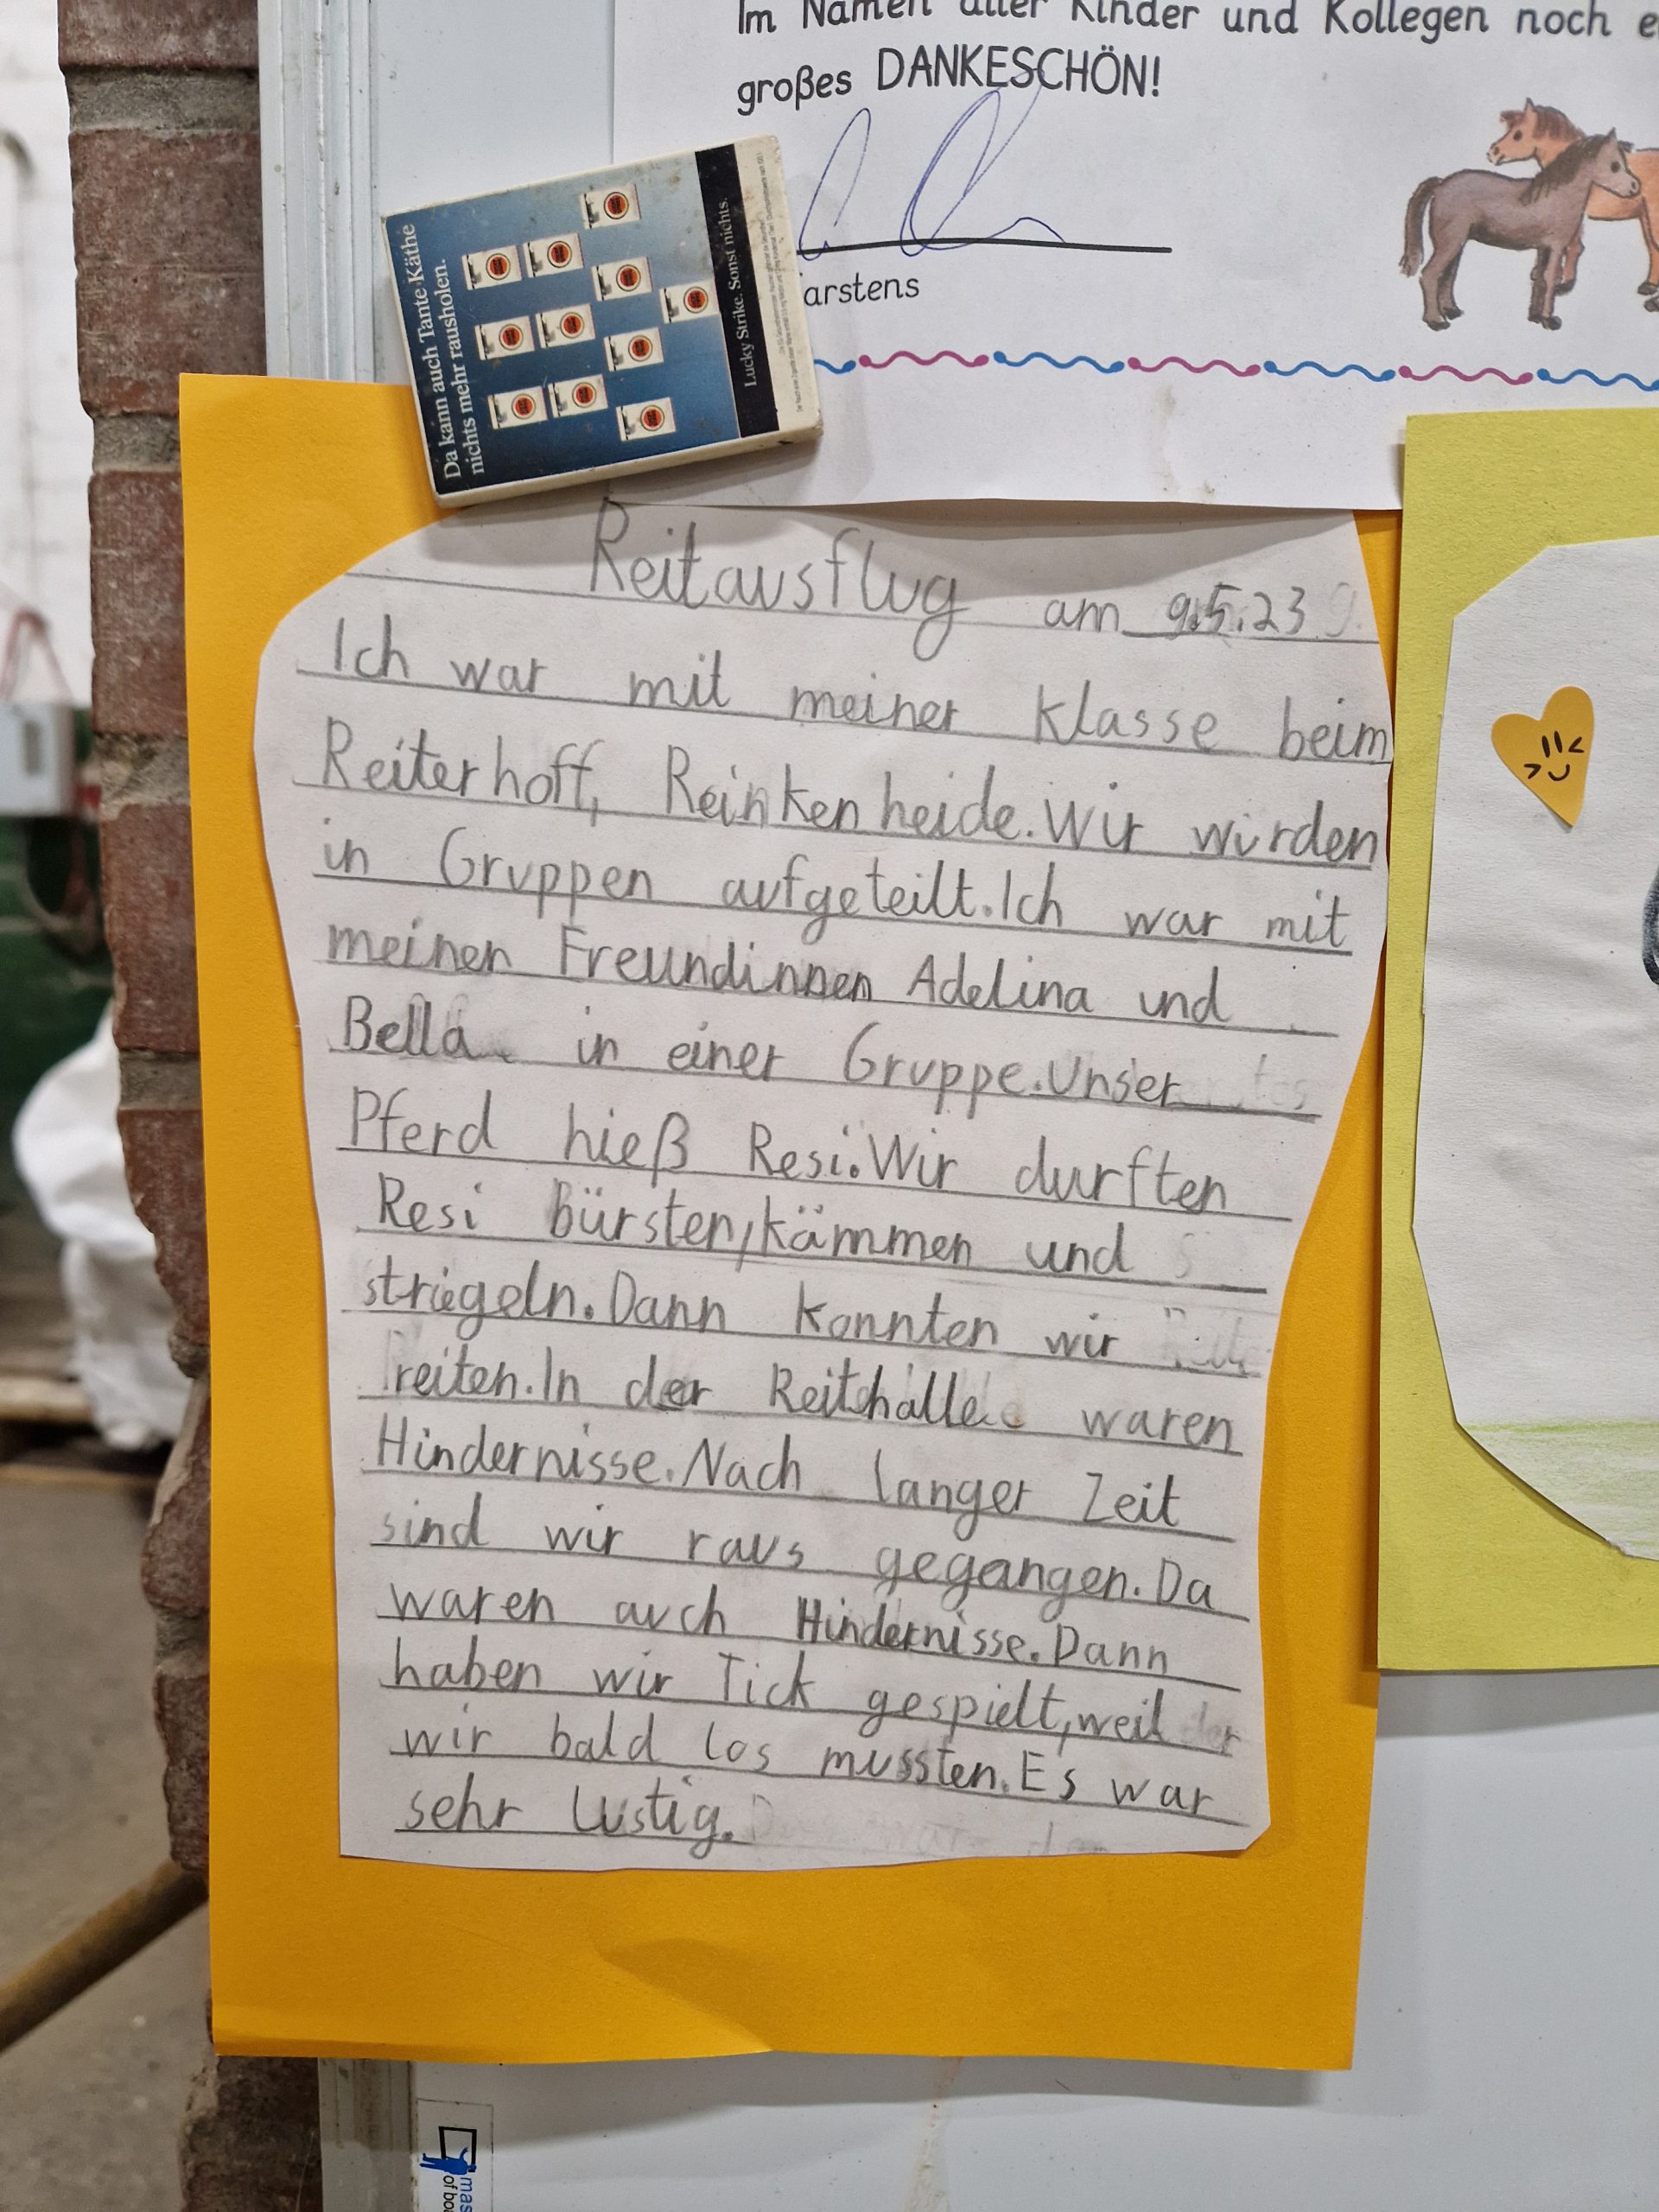 Im Namen aller Kinder und Kollegen noch
großes DANKESCHÖN!
arstens
Da kann auch Tante Käthe
nichts mehr rausholen.
Lucky Strike. Sonst nichts.
Reitausflug am 9.5.23
Ich war mit meiner Klasse beim
Reiterhoff, Reinkenheide. Wir wurden
in Gruppen aufgeteilt. Ich war mit
meinen Freundinnen Adelina und
Bella in einer Gruppe. Unser
Pferd hieß Resi. Wir durften
Resi bürsten, kämmen und
striegeln. Dann konnten wir
reiten. In der Reithalle waren
Hindernisse. Nach langer Zeit
sind wir raus gegangen. Da
waren auch Hindernisse. Dann
haben wir Tick gespielt, weil
wir bald los mussten. Es war
sehr lustig.